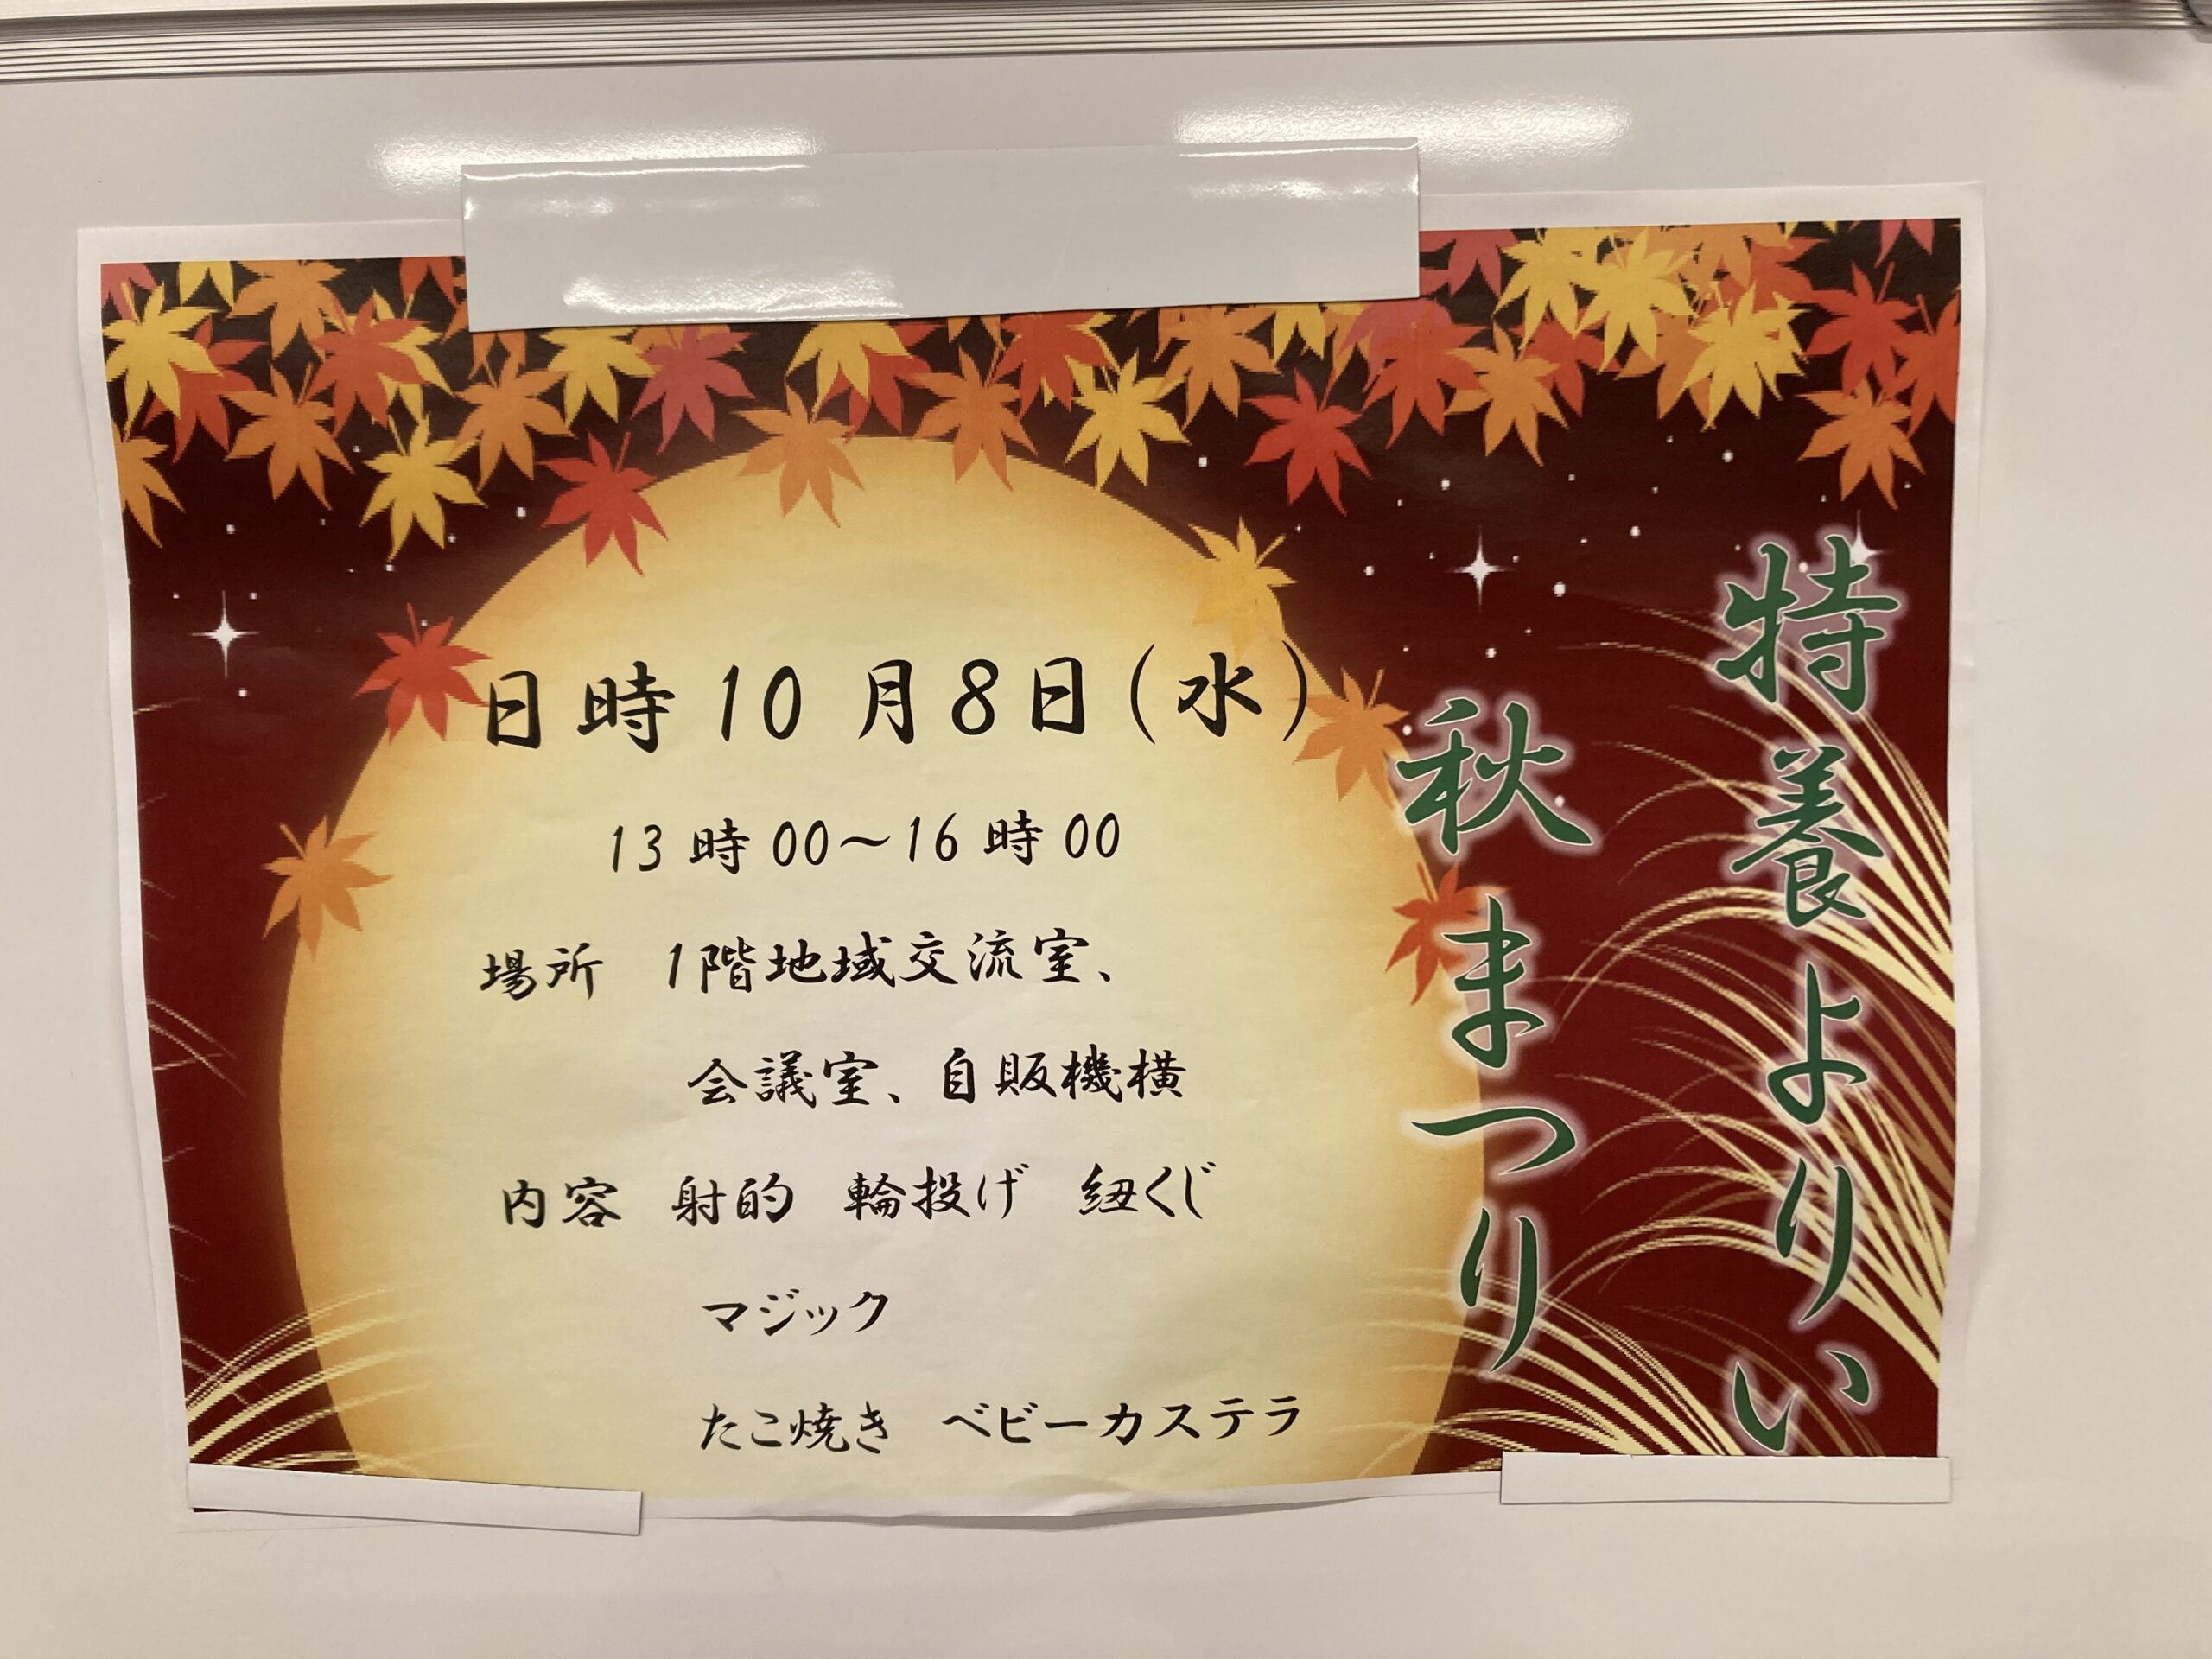 特養よりい
秋まつり
日時 10 月8日(水)
13 時 00～16 時 00
場所 1階地域交流室、
会議室、自販機横
内容 射的 輪投げ 紐くじ
マジック
たこ焼き ベビーカステラ